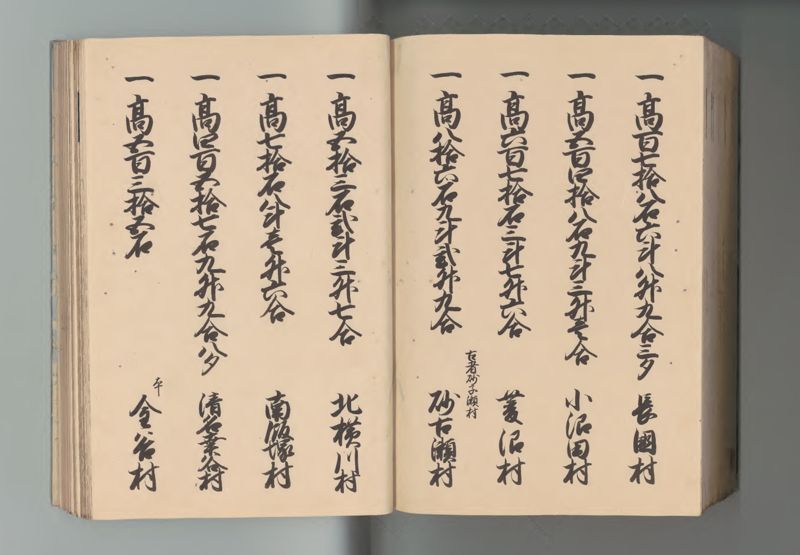 一高百七拾八石六斗八升九合三夕 長國村
一高五百四拾八石九斗三升壱合 小沼田村
一高六百七拾石三斗七升六合 菱沼村
古者砂子瀬村
一高八拾六石九斗弐升九合 砂古瀬村
一高五拾三石弐斗三升七合 北横川村
一高七拾石八斗壱升六合 南飯塚村
一高四百五拾七石九升九合八夕 清名幸谷村
一高五百三拾五石 金谷村